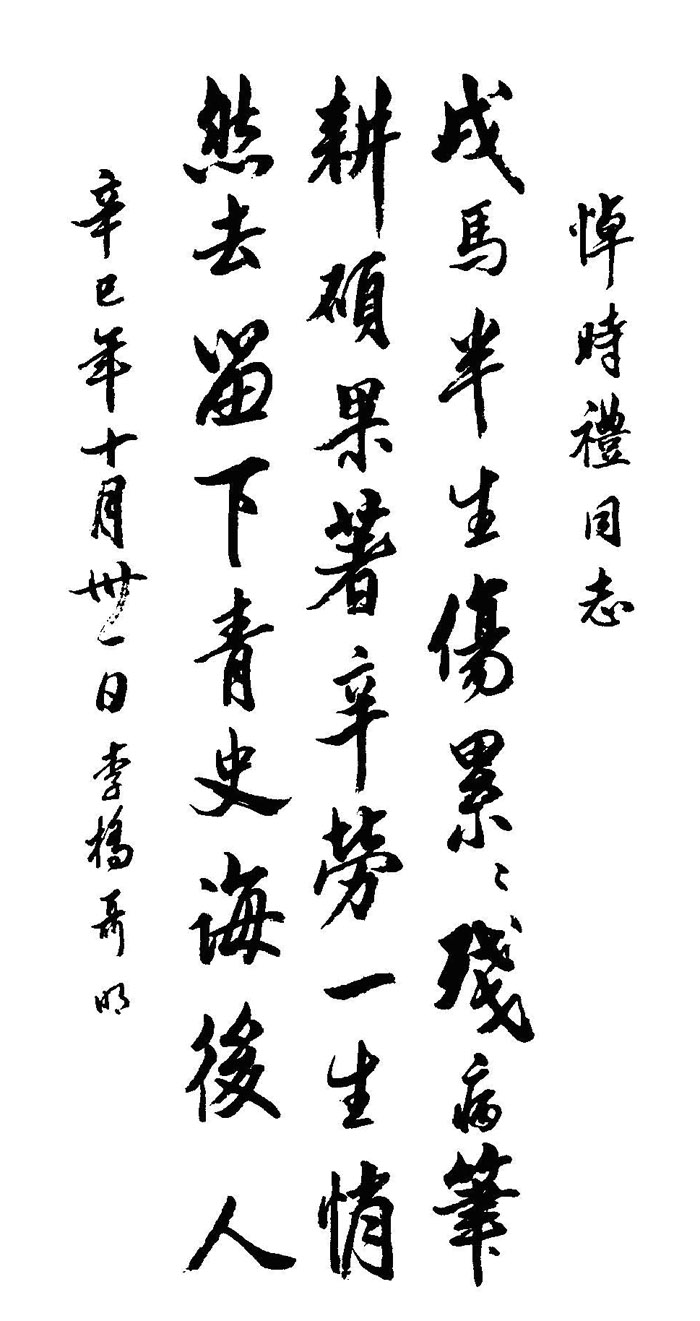 悼時禮同志
戎馬半生傷累〻殘病筆
耕碩果著辛勞一生悄
然去留下青史誨後人
辛巳年十月卅一日李橋